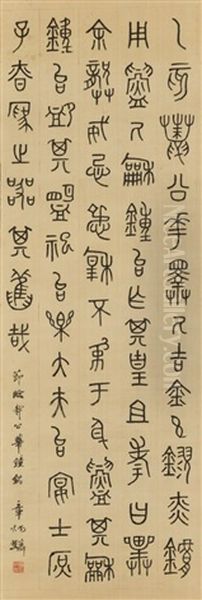 乙亥邾公華擇厥吉金玄鏐赤鏞
用鑄厥龢鐘台乍其皇且考曰
余畢威忌淑穆不于厥身鑄其龢
鐘台卹其盟祀台樂大夫台宴士庶
子眘為之其舊哉
節臨邾公華鐘銘 章炳麟